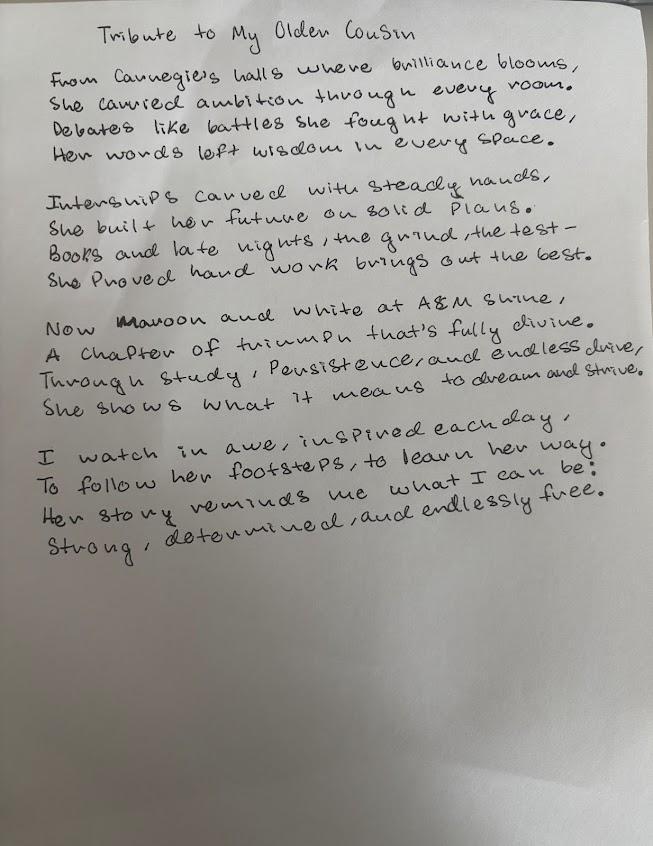 Tribute to My Older Cousin
From Carnegie's halls where brilliance blooms,
She carried ambition through every room.
Debates like battles she fought with grace,
Her words left wisdom in every space.
Internships carved with steady hands,
She built her future on solid plans.
Books and late nights, the grind, the test–
She proved hard work brings out the best.
Now Maroon and white at A&M shine,
A chapter of triumph that's fully divine.
Through study, Persistence, and endless drive,
She shows what it means to dream and strive.
I watch in awe, inspired each day,
To follow her footsteps, to learn her way.
Her story reminds me what I can be:
Strong, determined, and endlessly free.